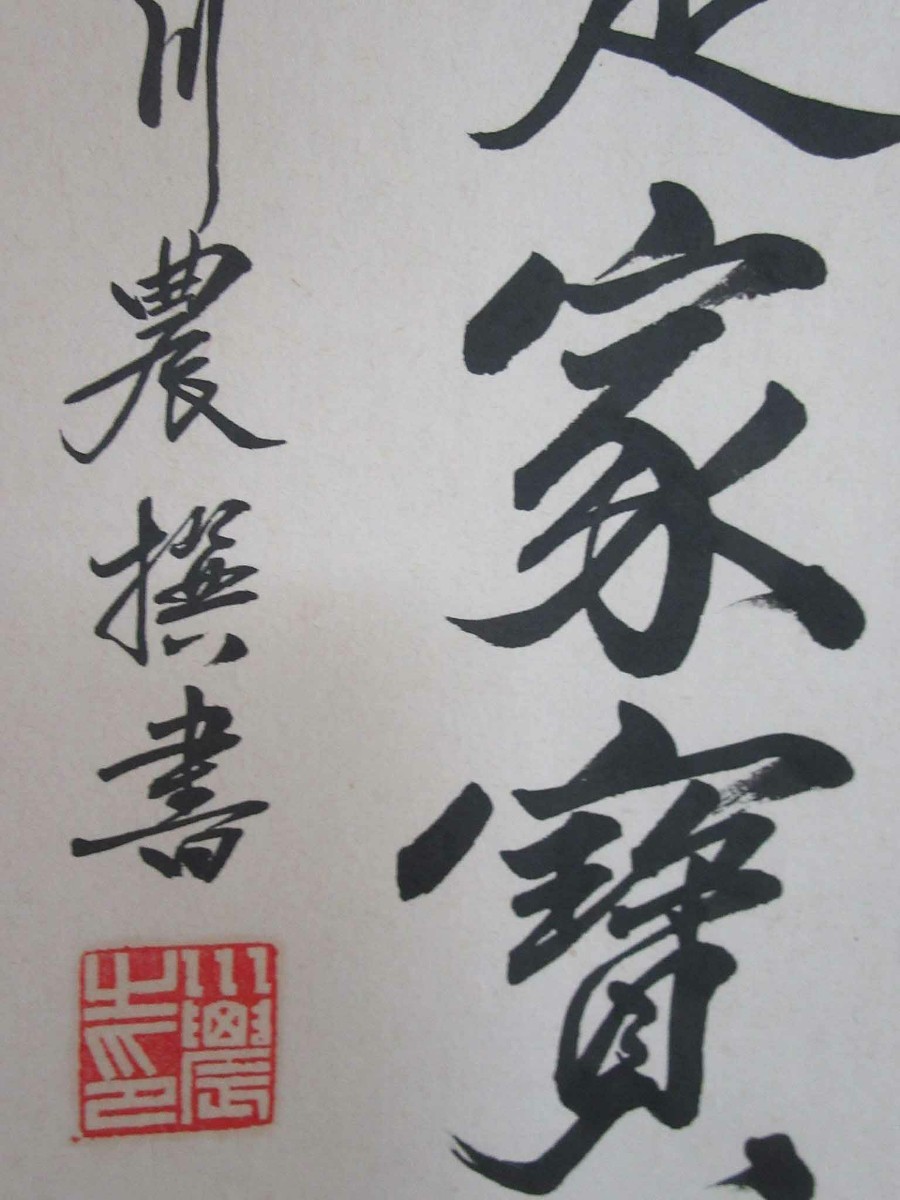 家寶
川農撰書
川農
之印